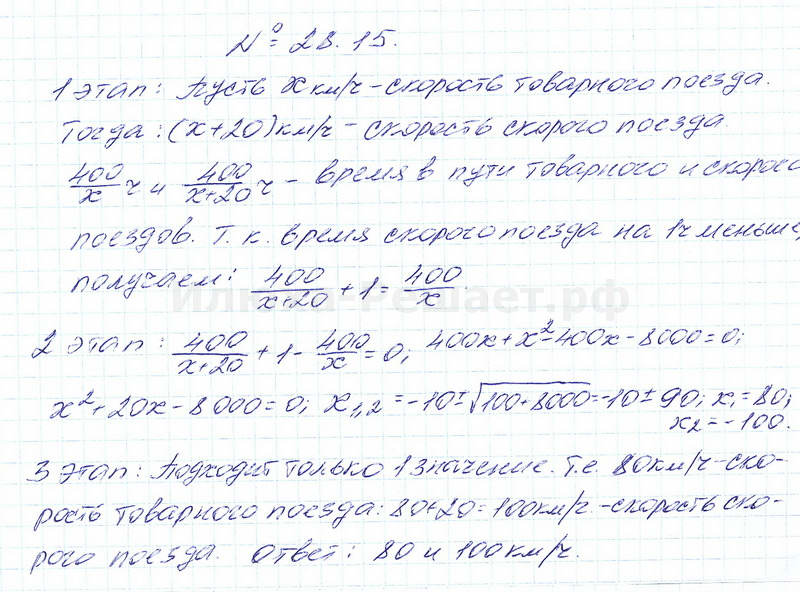 № 28.15.
1 этап: Пусть x км/ч - скорость товарного поезда.
Тогда: (x+20) км/ч - скорость скорого поезда.
400/x ч и 400/(x+20) ч - время в пути товарного и скорого
поездов. Т.к. время скорого поезда на 1ч меньше,
получаем: 400/(x+20) + 1 = 400/x
илюха-решает.рф
2 этап: 400/(x+20) + 1 - 400/x = 0; 400x + x² - 400x - 8000 = 0;
x² + 20x - 8000 = 0; x₁,₂ = -10 ± √(100+8000) = -10 ± 90; x₁ = 80;
x₂ = -100.
3 этап: Подходит только 1 значение. Т.е. 80 км/ч - ско-
рость товарного поезда: 80+20=100 км/ч. - скорость ско-
рого поезда. Ответ: 80 и 100 км/ч.